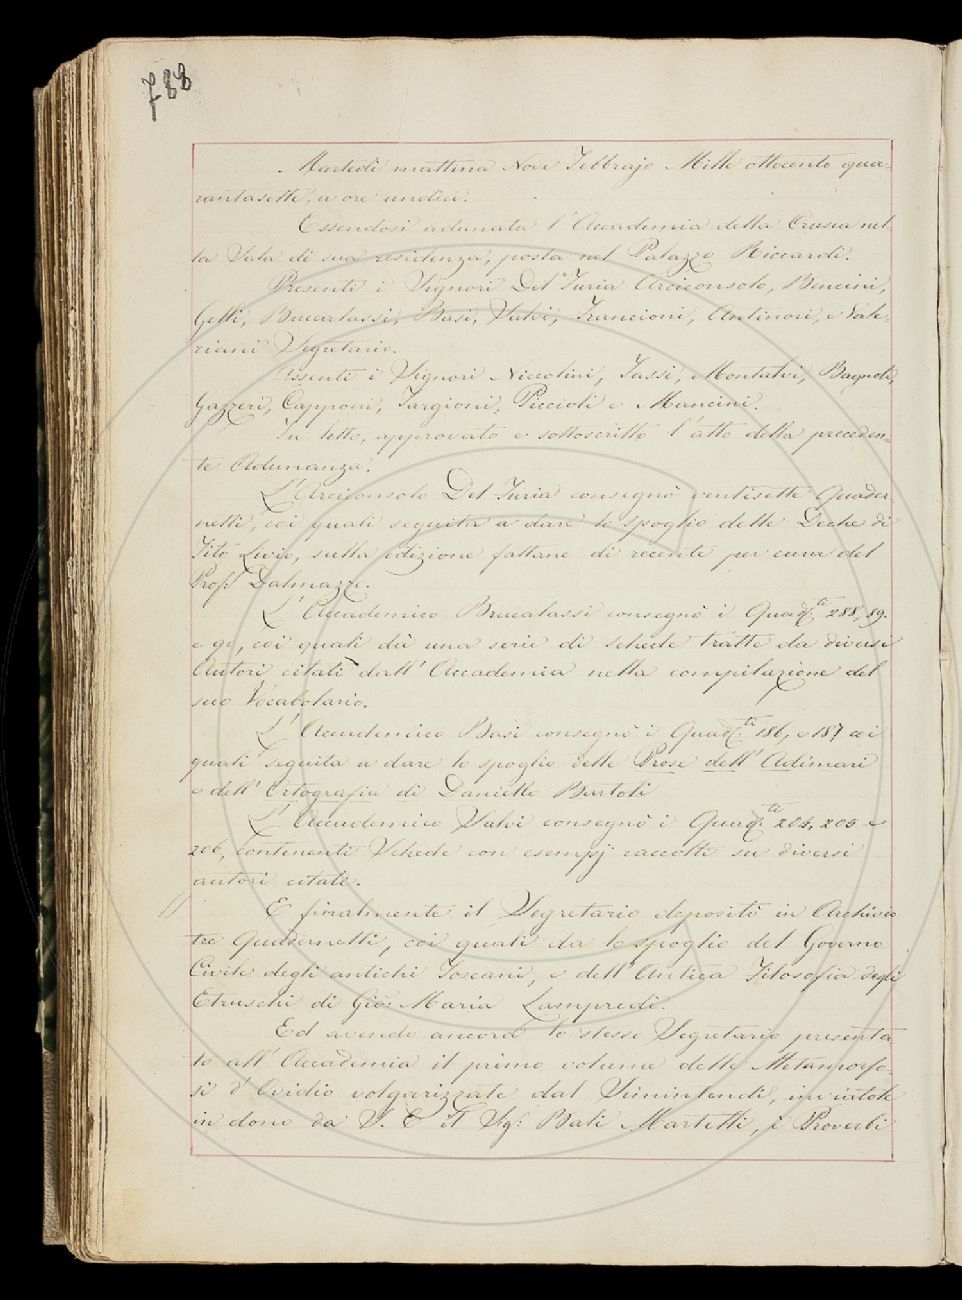 788
Martedì mattina Nove Febbrajo Mille ottocento qua-
rantasette, a ore undici.
Essendosi adunata l'Accademia della Crusca nel-
la Sala di sua residenza, posta nel Palazzo Riccardi.
Presenti i Signori Del Furia Arciconsolo, Bencini,
Gelli, Brucalassi, Basi, Salvi, Francioni, Antinori, e Vale-
riani Segretario.
Assenti i Signori Niccolini, Tassi, Montalvi, Bagnoli,
Gazzeri, Capponi, Targioni, Piccioli e Mancini.
Fu letto, approvato e sottoscritto l'atto della preceden-
te Adunanza.
L'Arciconsolo Del Furia consegnò ventisette Quader-
netti, coi quali seguita a dare lo spoglio delle Deche di
Tito Livio, sulla edizione fattane di recente per cura del
Prof. Dalmazzo.
L'Accademico Brucalassi consegnò i Quad.ti 288, 89.
e 90, coi quali dà una serie di schede tratte da diversi
Autori citati dall'Accademia nella compilazione del
suo Vocabolario.
L'Accademico Basi consegnò i Quad.ti 186, e 187 coi
quali seguita a dare lo spoglio delle Prose dell'Adimari
e dell'Ortografia di Daniello Bartoli
L'Accademico Salvi consegnò i Quad.ti 204, 205 e
206, contenenti Schede con esempj raccolti su diversi
autori citati.
E finalmente il Segretario depositò in Archivio
tre Quadernetti, coi quali da lo spoglio del Governo
Civile degli antichi Toscani, e dell'Antica Filosofia degli
Etruschi di Gio: Maria Lampredi.
Ed avendo ancora lo stesso Segretario presenta-
to all'Accademia il primo volume delle Metamorfo-
si d'Ovidio volgarizzate dal Simintendi, inviatole
in dono da S. E. il Sig: Balì Martelli, i Proverbi